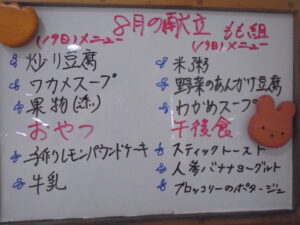 8月の献立 もも組
(19日)メニュー
炒り豆腐
ワカメスープ
果物(添)
おやつ
手作りレモンパウンドケーキ
牛乳
(19日)メニュー
米粥
野菜のあんかけ豆腐
わかめスープ
午後食
スティックトースト
人参バナナヨーグルト
ブロッコリーのポタージュ